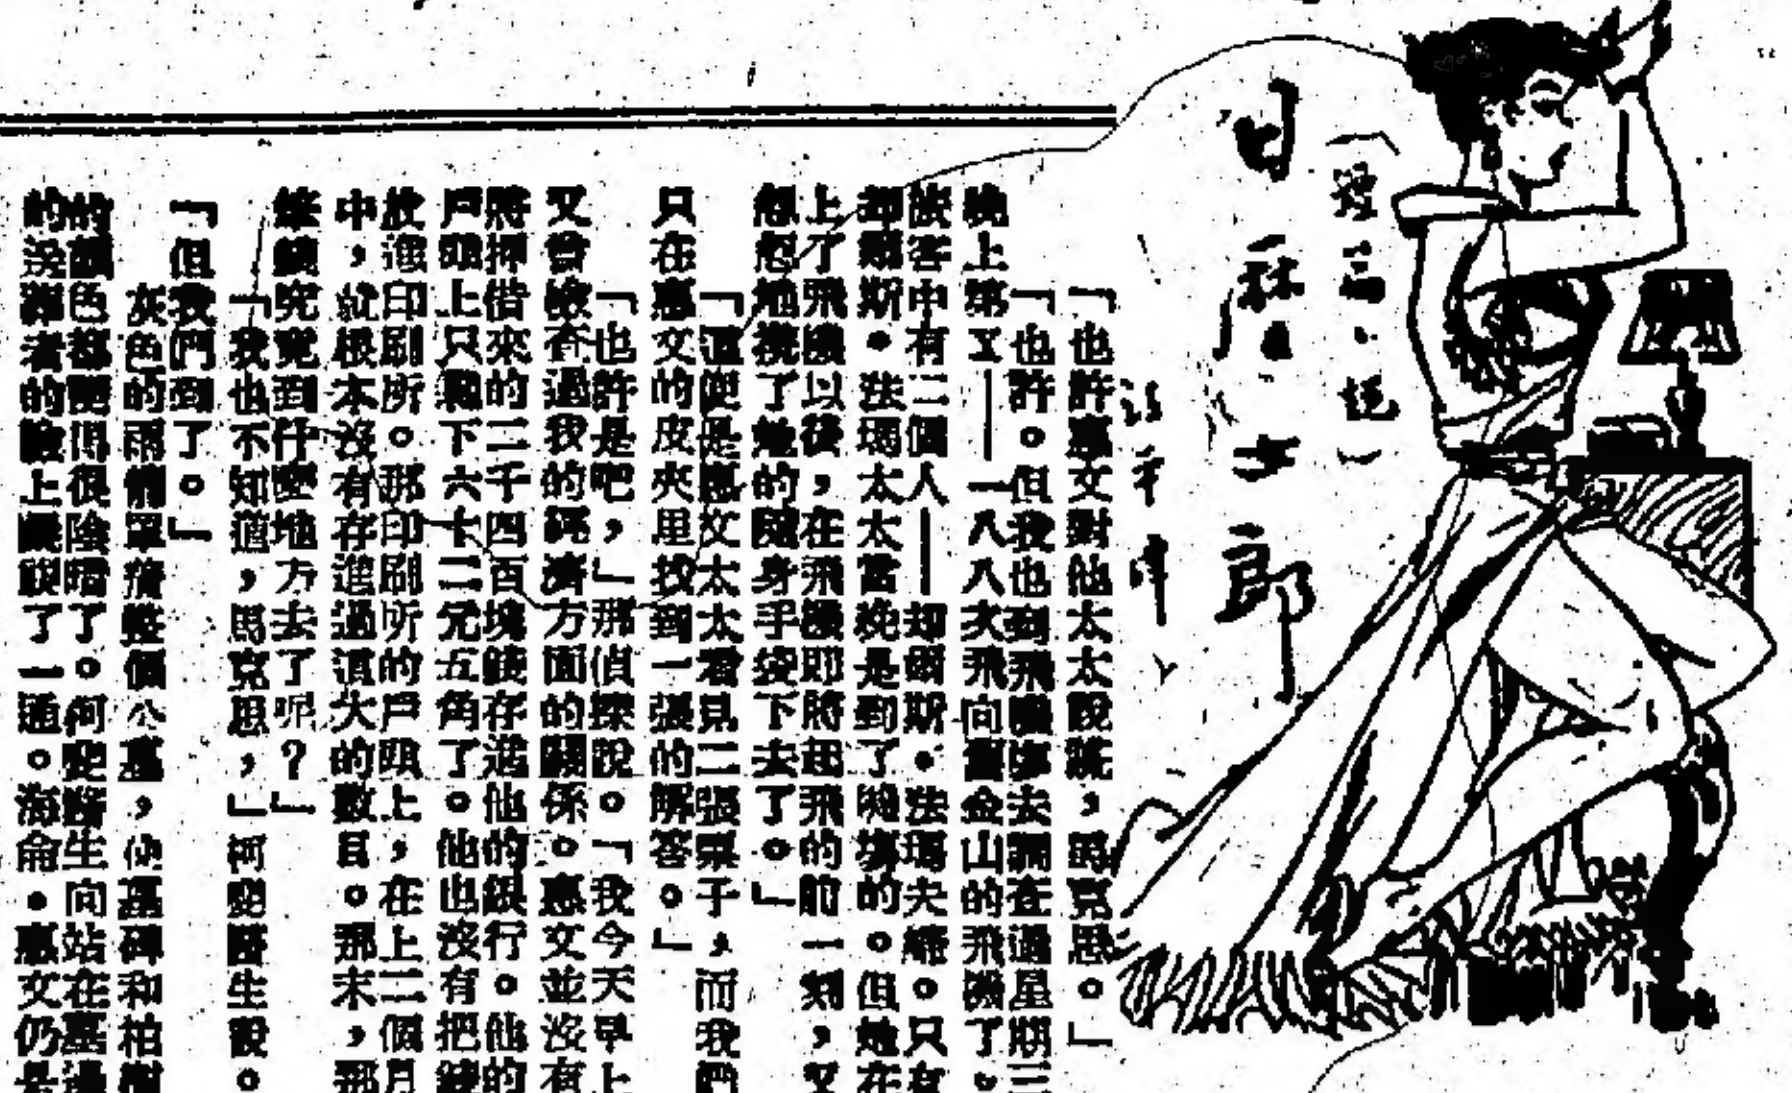 日森士郎
「也許惠文對他太太說謊，馬克思。」
「也許。但我也到飛機塲去調查過星期三
晚上第工——一八八次飛向舊金山的飛機了。
旅客中有二個人——却爾斯・法瑪夫婦。只有
却爾斯・法瑪太太當晚是到了機塲的。但她在
上了飛機以後，在飛機即將起飛的前一刻，又
怱怱地攪了她的隨身手袋下去了。」
「這便是惠文太太看見二張票子，而我們
只在惠文的皮夾里找到一張的解答。」
「也許是吧，」那偵探說。「我今天早上
又曾檢查過我的經濟方面的關係。惠文並沒有
將押借來的二千四百塊錢存進他的銀行。他的
戶頭上只剩下六十二元五角了。他也沒有把錢
放進印刷所。那印刷所的戶頭上，在上二個月
中，就根本沒有存進過這大的數目。那末，那
筆錢究竟到什麼地方去了呢？」
「我也不知道，馬克思，」柯史醫生說。
「但我們到了。」
灰色的雨籠罩着整個公墓，使墓碑和柏樹
的顏色都變得很陰暗了。柯史醫生向站在墓邊
的送葬者的臉上凝視了一遍。海侖・惠文仍是